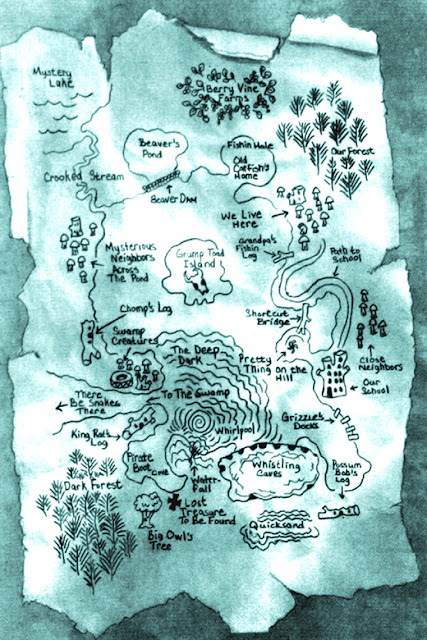 Mystery
Lake
Berry Vine
Farms
Beaver's
Pond
Fishin Hole
Old
Catfish's
Home
Our Forest
Crooked Stream
Beaver Dam
We Live
Here
Mysterious
Neighbors
Across
The Pond
Grandpa's
Fishin
Log
Path to
School
Grump Toad
Island
Chomp's Log
Shortcut
Bridge
Swamp
Creatures
The Deep
Dark
Pretty
Thing on the
Hill
Close
Neighbors
There
Be Snakes
There
To The Swamp
Our
School
King Rat's
Log
Whirlpool
Grizzle's
Docks
Pirate
Boot
Cove
Water-
Fall
Whistling
Caves
Possum
Bob's
Log
Dark Forest
Lost
Treasure
To Be Found
Big Owl's
Tree
Quicksand